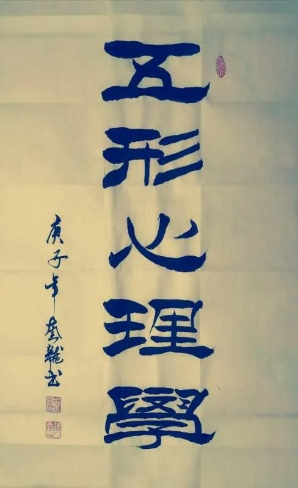 五形心理學
庚子年 書